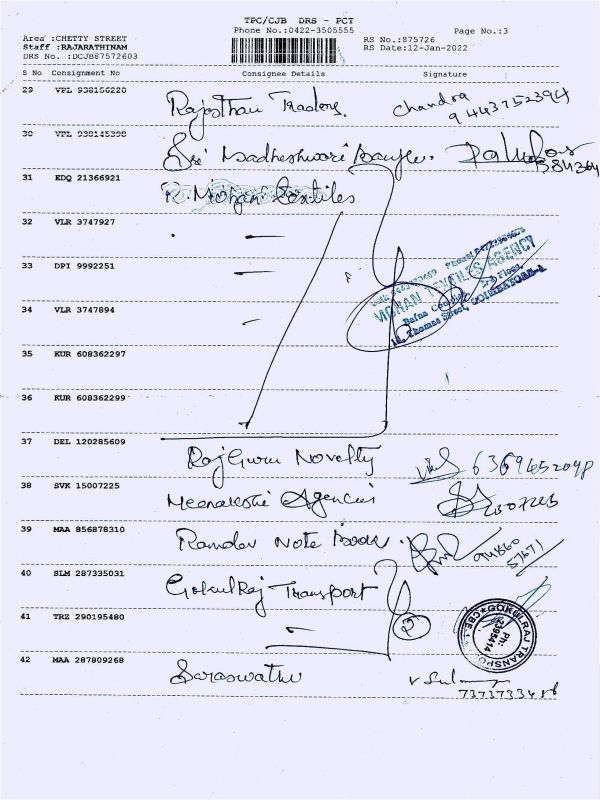 TPC/CJB DRS - PCT
Phone No.:0422-3505555
Page No.:3
Area :CHETTY STREET
Staff :RAJARATHINAM
DRS No. :DCJB87572603
RS No.:875726
RS Date:12-Jan-2022
S No Consignment No Consignee Details Signature
29 VPL 938156220 Rajasthan Traders. Chandra
9443752394
30 VPL 938145398 Sri
31 EDQ 21366921 K. Mohan Textiles
32 VLR 3747927
33 DPI 9992251
MOHAN TEXTILES AGENCY
COIMBATORE-1
34 VLR 3747894
35 KUR 608362297
36 KUR 608362299
37 DEL 120285609 Raj Guru Novelty 6369452098
38 SVK 15007225 Meenakshi Agencies
39 MAA 856878310 Ramdev Note Book
40 SLM 287335031 Gokulraj Transport
41 TRZ 290195480
GOKULRAJ TRANSPORT
Ph: 2395414
CBE-1
42 MAA 287809268 Saraswathi